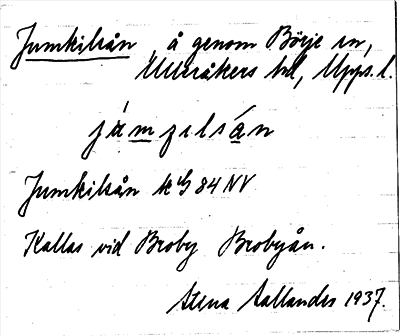 Jumkilsån å genom Börje sn,
Ulleråkers hd, Upps. l.
jámʒɩlsán
Jumkilsån kbl 84 NV
Kallas vid Broby Brobyån.
Stena Sallander 1937.